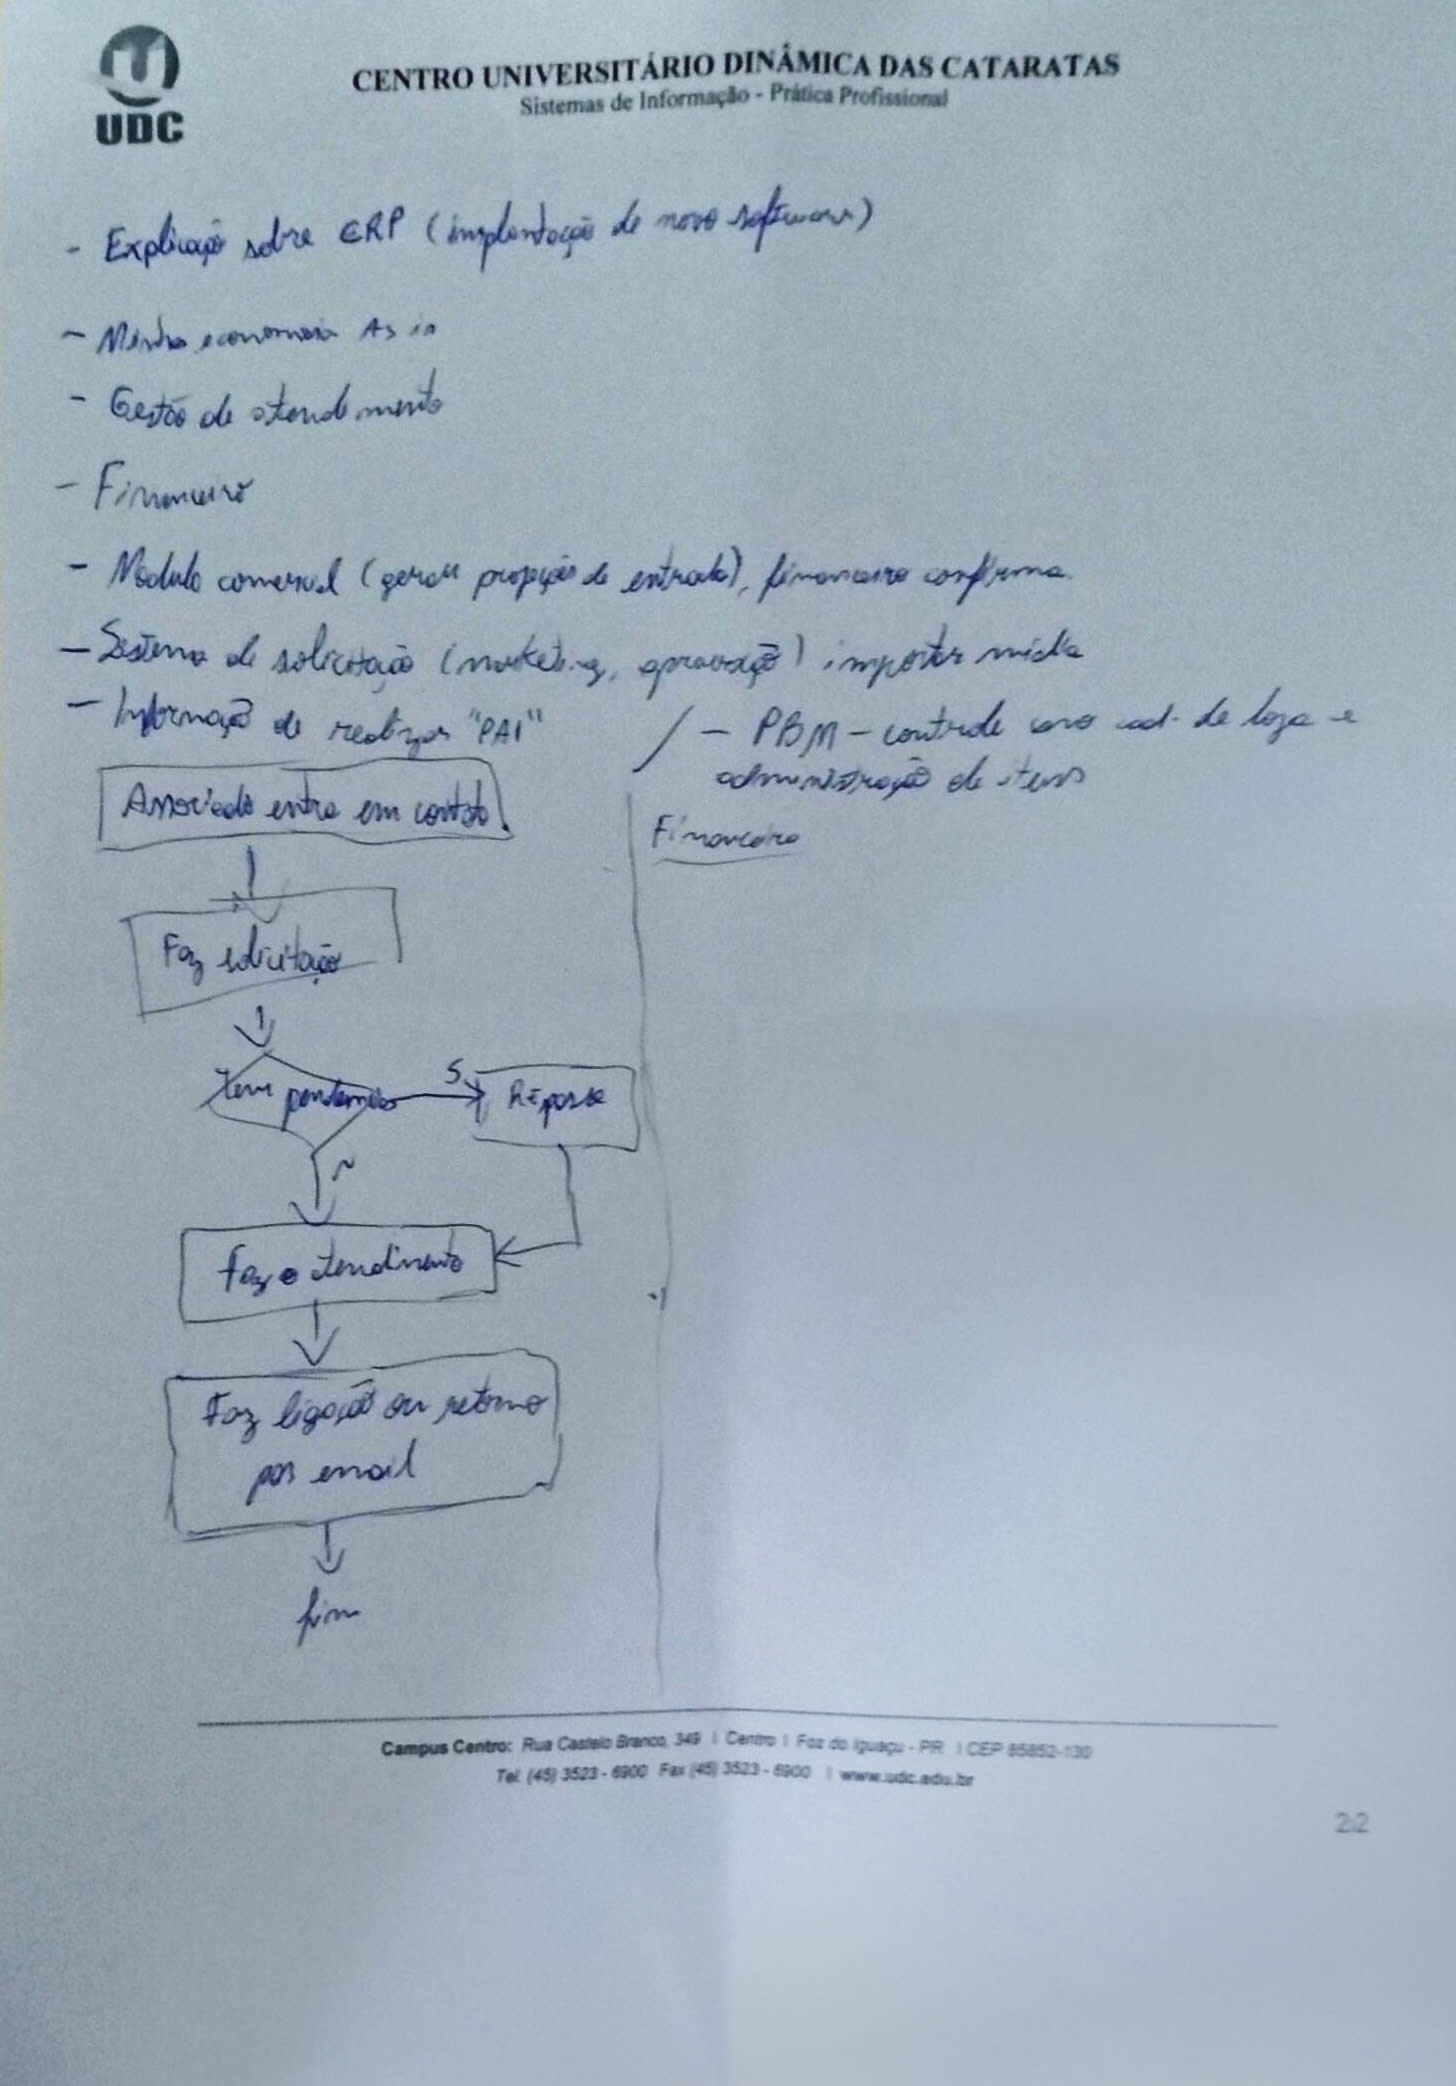 UDC
CENTRO UNIVERSITÁRIO DINÂMICA DAS CATARATAS
Sistemas de Informação - Prática Profissional
- Explicação sobre ERP (implantação de novo software)
- Minha economia As is
- Gestão de atendimento
- Financeiro
- Módulo comercial (gerou de entrada), financeiro confirma.
- Sistema de solicitação (marketing, aprovação) importar mídia
- Informação de realizar "PAI"
/ - PBM - controle cad. de loja e
administração de itens
Financeiro
Associado entra em contato.
Faz solicitação
Tem pendencias
S
Repasse
N
Faz o atendimento
Faz ligação ou retorno
por email
fim
Campus Centro: Rua Castelo Branco, 349 | Centro | Foz do Iguaçu - PR | CEP 85852-130
Tel: (45) 3523 - 6900 Fax (45) 3523 - 6900 | www.udc.edu.br
22